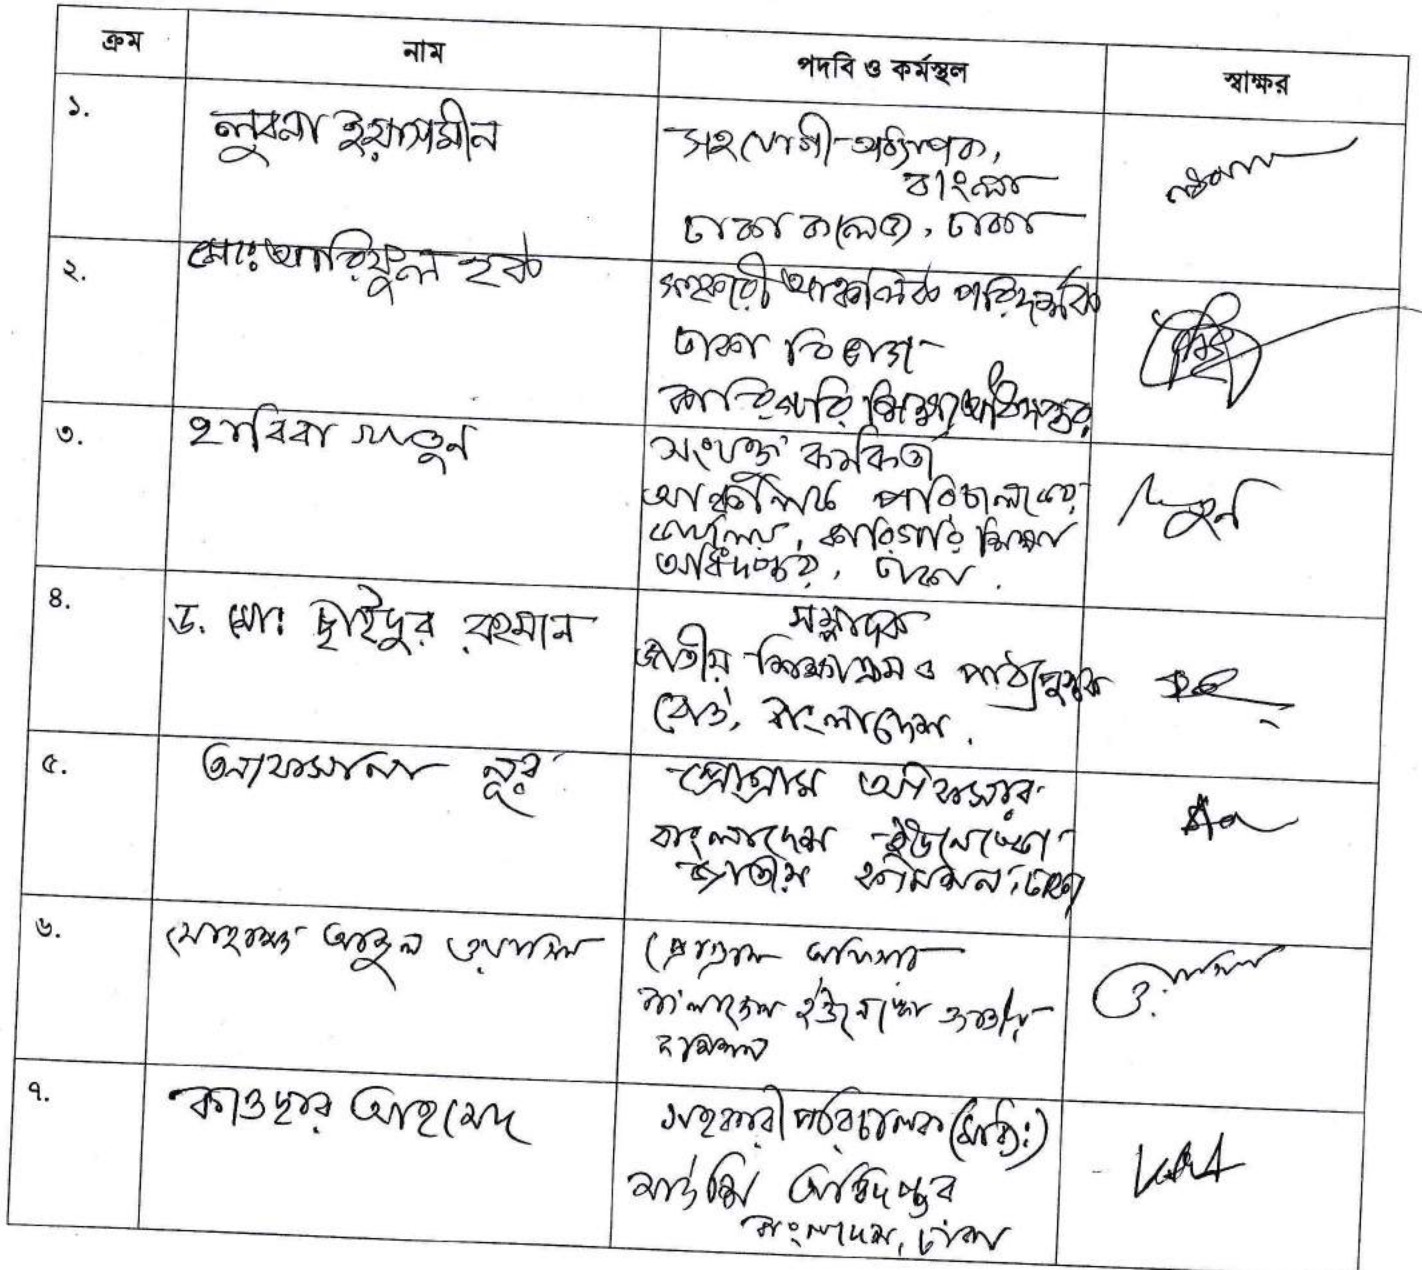 ক্রম নাম পদবি ও কর্মস্থল স্বাক্ষর
১. লুবনা ইয়াসমীন সহযোগী অধ্যাপক,
বাংলা
ঢাকা কলেজ, ঢাকা
২. মোঃ আরিফুল হক সহকারী আঞ্চলিক পরিদর্শক
ঢাকা বিভাগ
কারিগরি শিক্ষা অধিদপ্তর
৩. হাবিবা খাতুন সংযুক্ত কর্মকর্তা
আঞ্চলিক পরিচালকের
কার্যালয়, কারিগরি শিক্ষা
অধিদপ্তর, ঢাকা.
৪. ড. মোঃ ছাইদুর রহমান সম্পাদক
জাতীয় শিক্ষাক্রম ও পাঠ্যপুস্তক
বোর্ড, বাংলাদেশ.
৫. আফসানা নূর প্রোগ্রাম অফিসার
বাংলাদেশ ইউনেস্কো
জাতীয় কমিশন, ঢাকা
৬. মোহাম্মদ আব্দুল ওয়াসি প্রোগ্রাম অফিসার
বাংলাদেশ ইউনেস্কো জাতীয়
কমিশন
৭. কাওছার আহমেদ সহকারী পরিচালক (মাধ্যঃ)
মাউশি অধিদপ্তর
বাংলাদেশ, ঢাকা